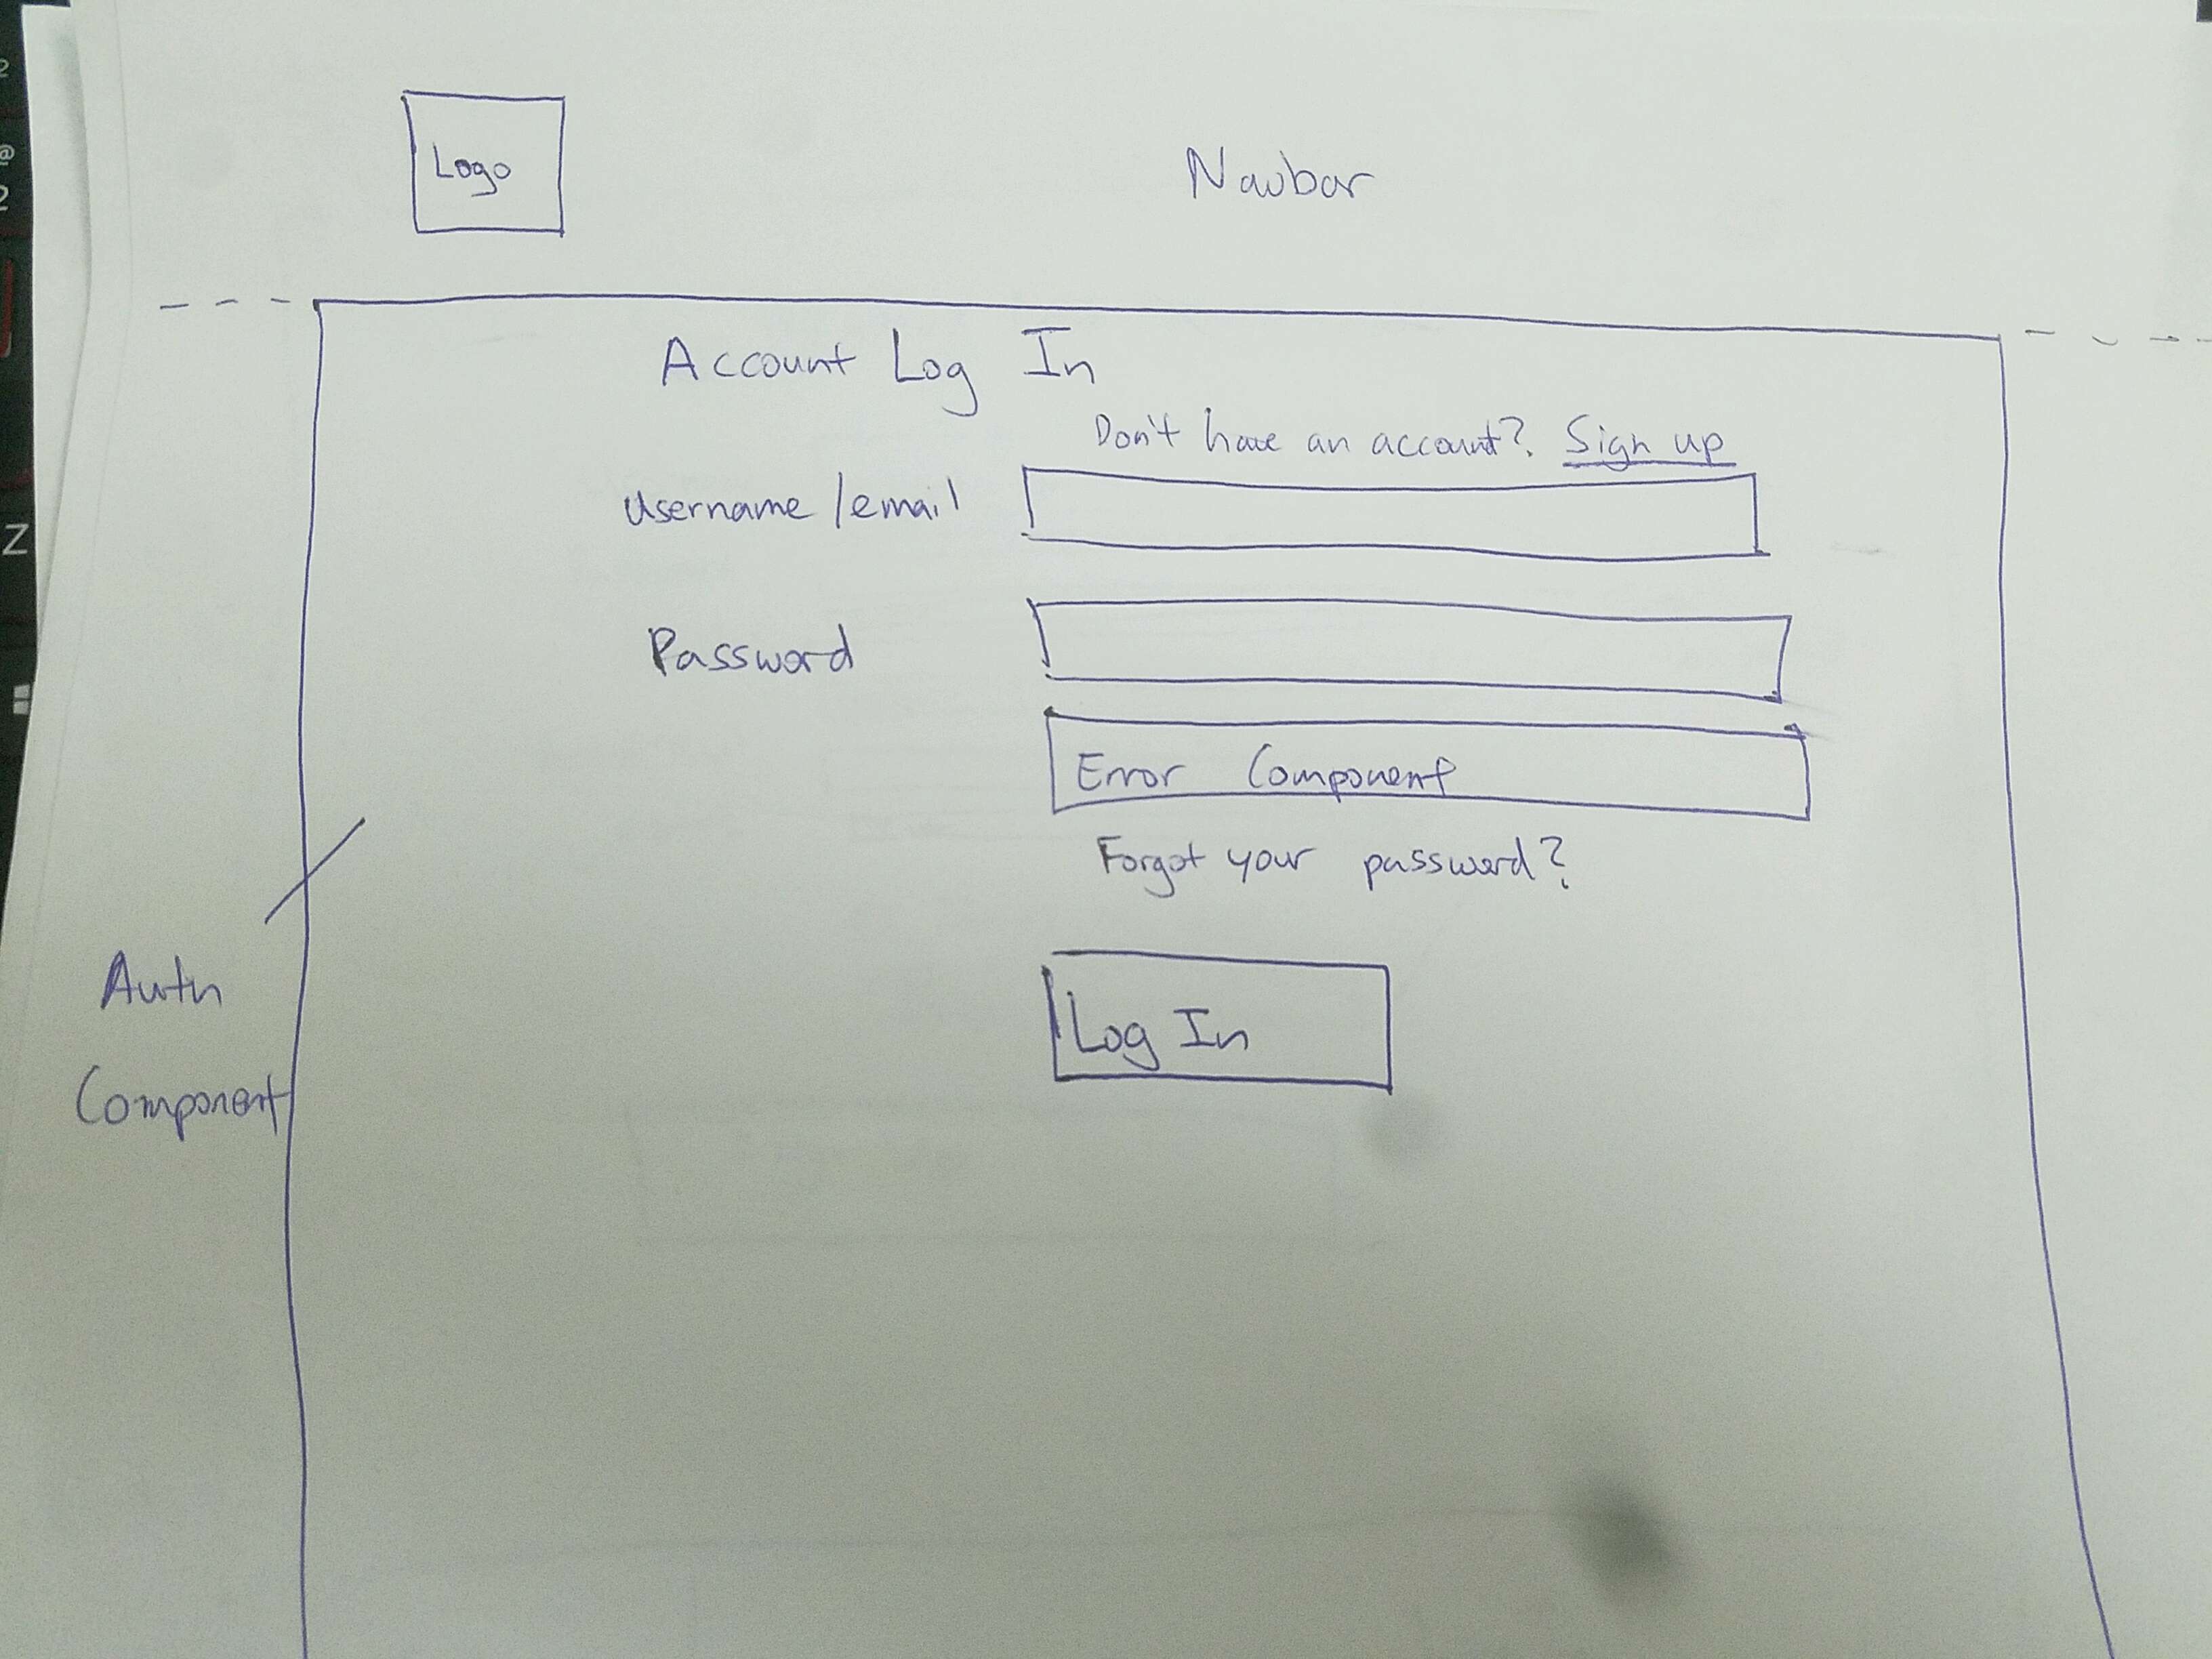 Logo
Navbar
Account Log In
Don't have an account? Sign up
Username /email
Password
Error Component
Forgot your password?
Log In
Auth
Component
2
@
2
Z